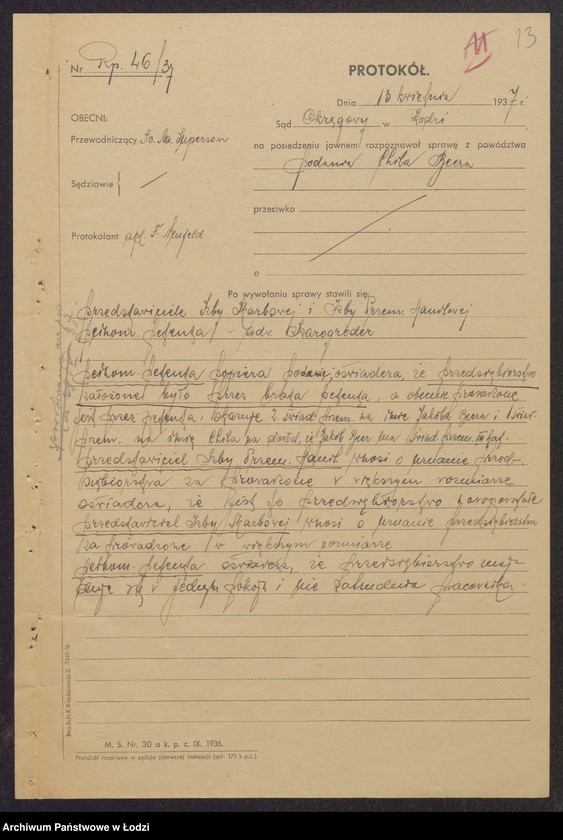 13
Nr. Rp. 46/37
PROTOKÓŁ.
Dnia 13 kwietnia 1937 r.
OBECNI:
Sąd Okręgowy w Łodzi
Przewodniczący So. M.
na posiedzeniu jawnem rozpoznawał sprawę z powództwa
podania Chila Beera
Sędziowie
przeciwko
Protokólant apl. F.
o
Po wywołaniu sprawy stawili się:
przedstawiciele Izby Skarbowej i Izby Przem. Handlowej
pełnom. petenta - adw. Czarogroder
pełnom. petenta popiera podanie, oświadcza, że przedsiębiorstwo
założone było przez brata petenta, a obecnie prowadzone
jest przez petenta. 2 świad. przem. na imię Jakóba Beera i 1 świad.
przem. na imię Chila na dowód, że Jakób Beer ma świad. przem. III kat.
Przedstawiciel Izby Przem. Handl. wnosi o uznanie przed-
siębiorstwa za prowadzone w większym rozmiarze
oświadcza, że jest to przedsiębiorstwo
przedstawiciel Izby Skarbowej wnosi o uznanie przedsiębiorstwa
za prowadzone w większym rozmiarze
pełnom. petenta oświadcza, że przedsiębiorstwo znaj-
duje się w jednym pokoju i nie zatrudnia pracownika.
M. S. Nr. 30 a k. p. c. IX. 1936.
Protokół rozprawy w sądzie pierwszej instancji (art. 173 k.p.c.)
Archiwum Państwowe w Łodzi